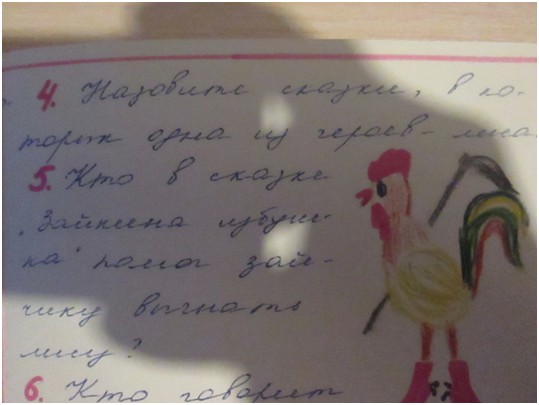 4. Назовите сказки, в ко-
торых одна из героев - лиса.
5. Кто в сказке
"Зайкина избуш-
ка" помог зай-
чику выгнать
лису?
6. Кто говорит